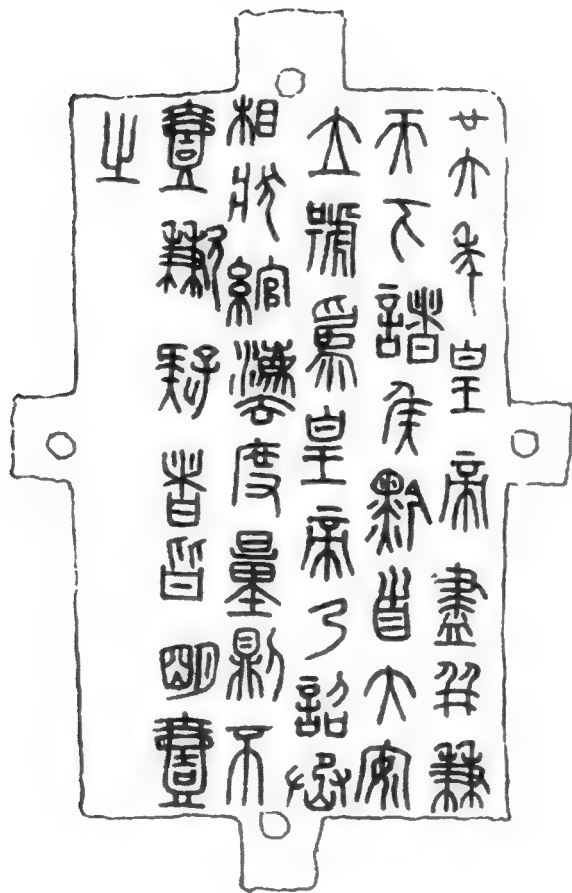 廿六年皇帝盡并兼
天下諸侯黔首大安
立號為皇帝乃詔丞
相狀綰灋度量則不
壹歉疑者皆明壹
之